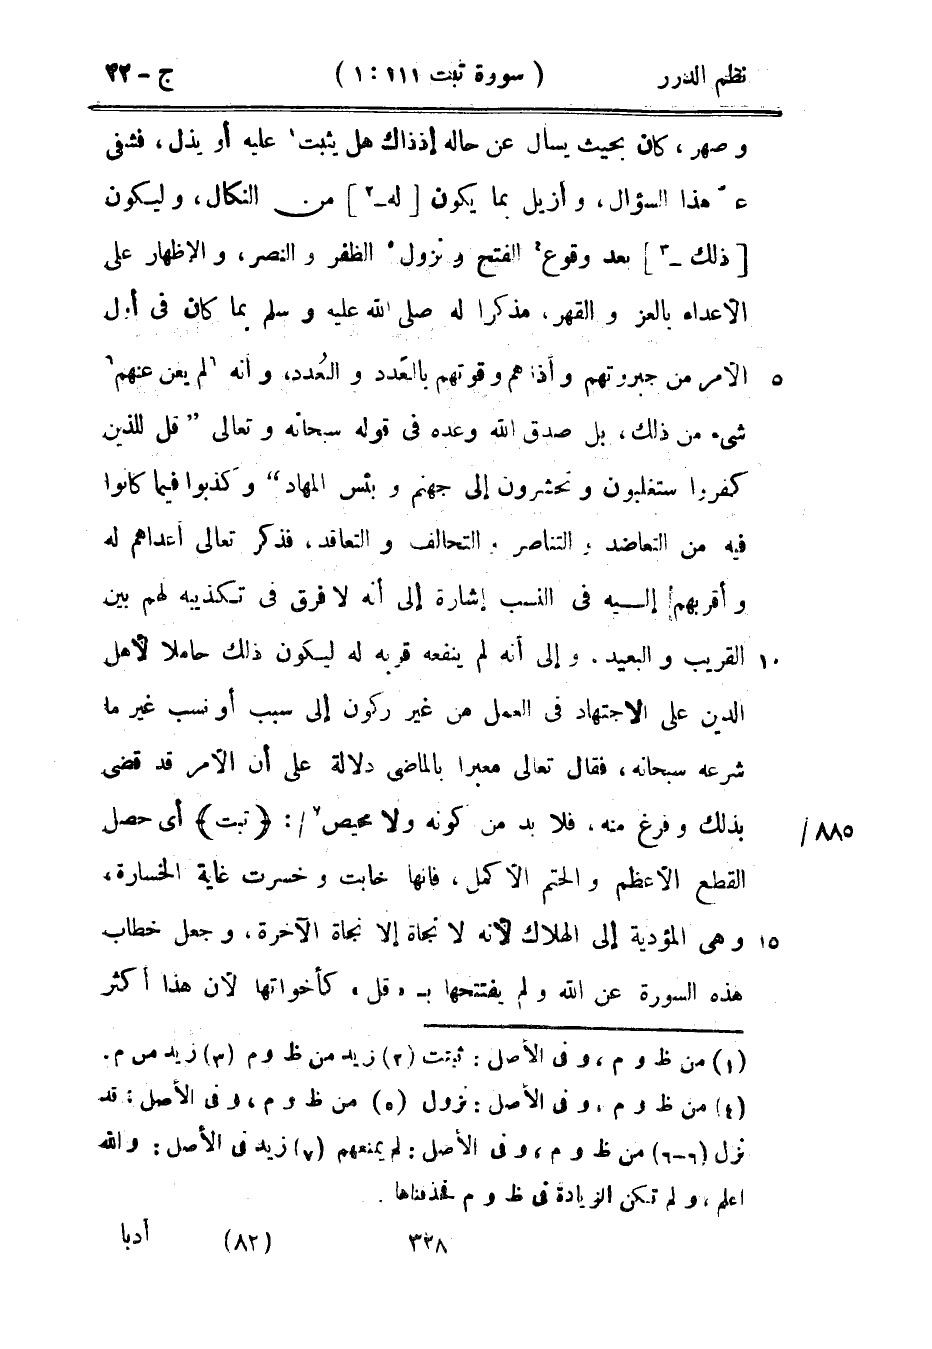 نظم الدرر ( سورة تبت ١١١ : ١ ) ج - ٢٢
و صهر ، كان بحيث يسأل عن حاله إذذاك هل يثبت١ عليه أو يذل ، فشفى
ء هذا السؤال ، و أزيل بما يكون [ له-٢ ] من النكال ، و ليكون
[ ذلك -٣ ] بعد وقوع٤ الفتح و نزول٥ الظفر و النصر ، و الإظهار على
الأعداء بالعز و القهر ، مذكرا له صلى الله عليه و سلم بما كان فى أول
٥ الأمر من جبروتهم و أذاهم و قوتهم بالعَدد و العُدد ، و أنه ٦لم يغن عنهم٦
شىء من ذلك ، بل صدق الله وعده فى قوله سبحانه و تعالى ” قل للذين
كفروا ستغلبون و تحشرون إلى جهنم و بئس المهاد “ و كذبوا فيما كانوا
فيه من التعاضد و التناصر و التحالف و التعاقد ، فذكر تعالى أعداهم له
و أقربهم إليه فى النسب إشارة إلى أنه لا فرق فى تكذيبه لهم بين
١٠ القريب و البعيد . و إلى أنه لم ينفعه قربه له ليكون ذلك حاملا لأهل
الدين على الاجتهاد فى العمل من غير ركون إلى سبب أو نسب غير ما
شرعه سبحانه ، فقال تعالى معبرا بالماضى دلالة على أن الأمر قد قضى
بذلك و فرغ منه ، فلا بد من كونه ولا محيص٧ / : ﴿ تبت ﴾ أى حصل / ٨٨٥
القطع الأعظم و الحتم الأكمل ، فانها خابت و خسرت غاية الخسارة ،
١٥ و هى المؤدية إلى الهلاك لأنه لا نجاة إلا نجاة الآخرة ، و جعل خطاب
هذه السورة عن الله و لم يفتتحها بـ « قل » كأخواتها لأن هذا أكثر
(١) من ظ و م ، و فى الأصل : ثبتت (٢) زيد من ظ و م (٣) زيد من م .
(٤) من ظ و م ، و فى الأصل : نزول (٥) من ظ و م ، و فى الأصل : قد
نزل (٦-٦) من ظ و م ، و فى الأصل : لم يمنعهم (٧) زيد فى الأصل : والله
اعلم ، و لم تكن الزيادة فى ظ و م فحذفناها .
٣٢٨ (٨٢) أدبا